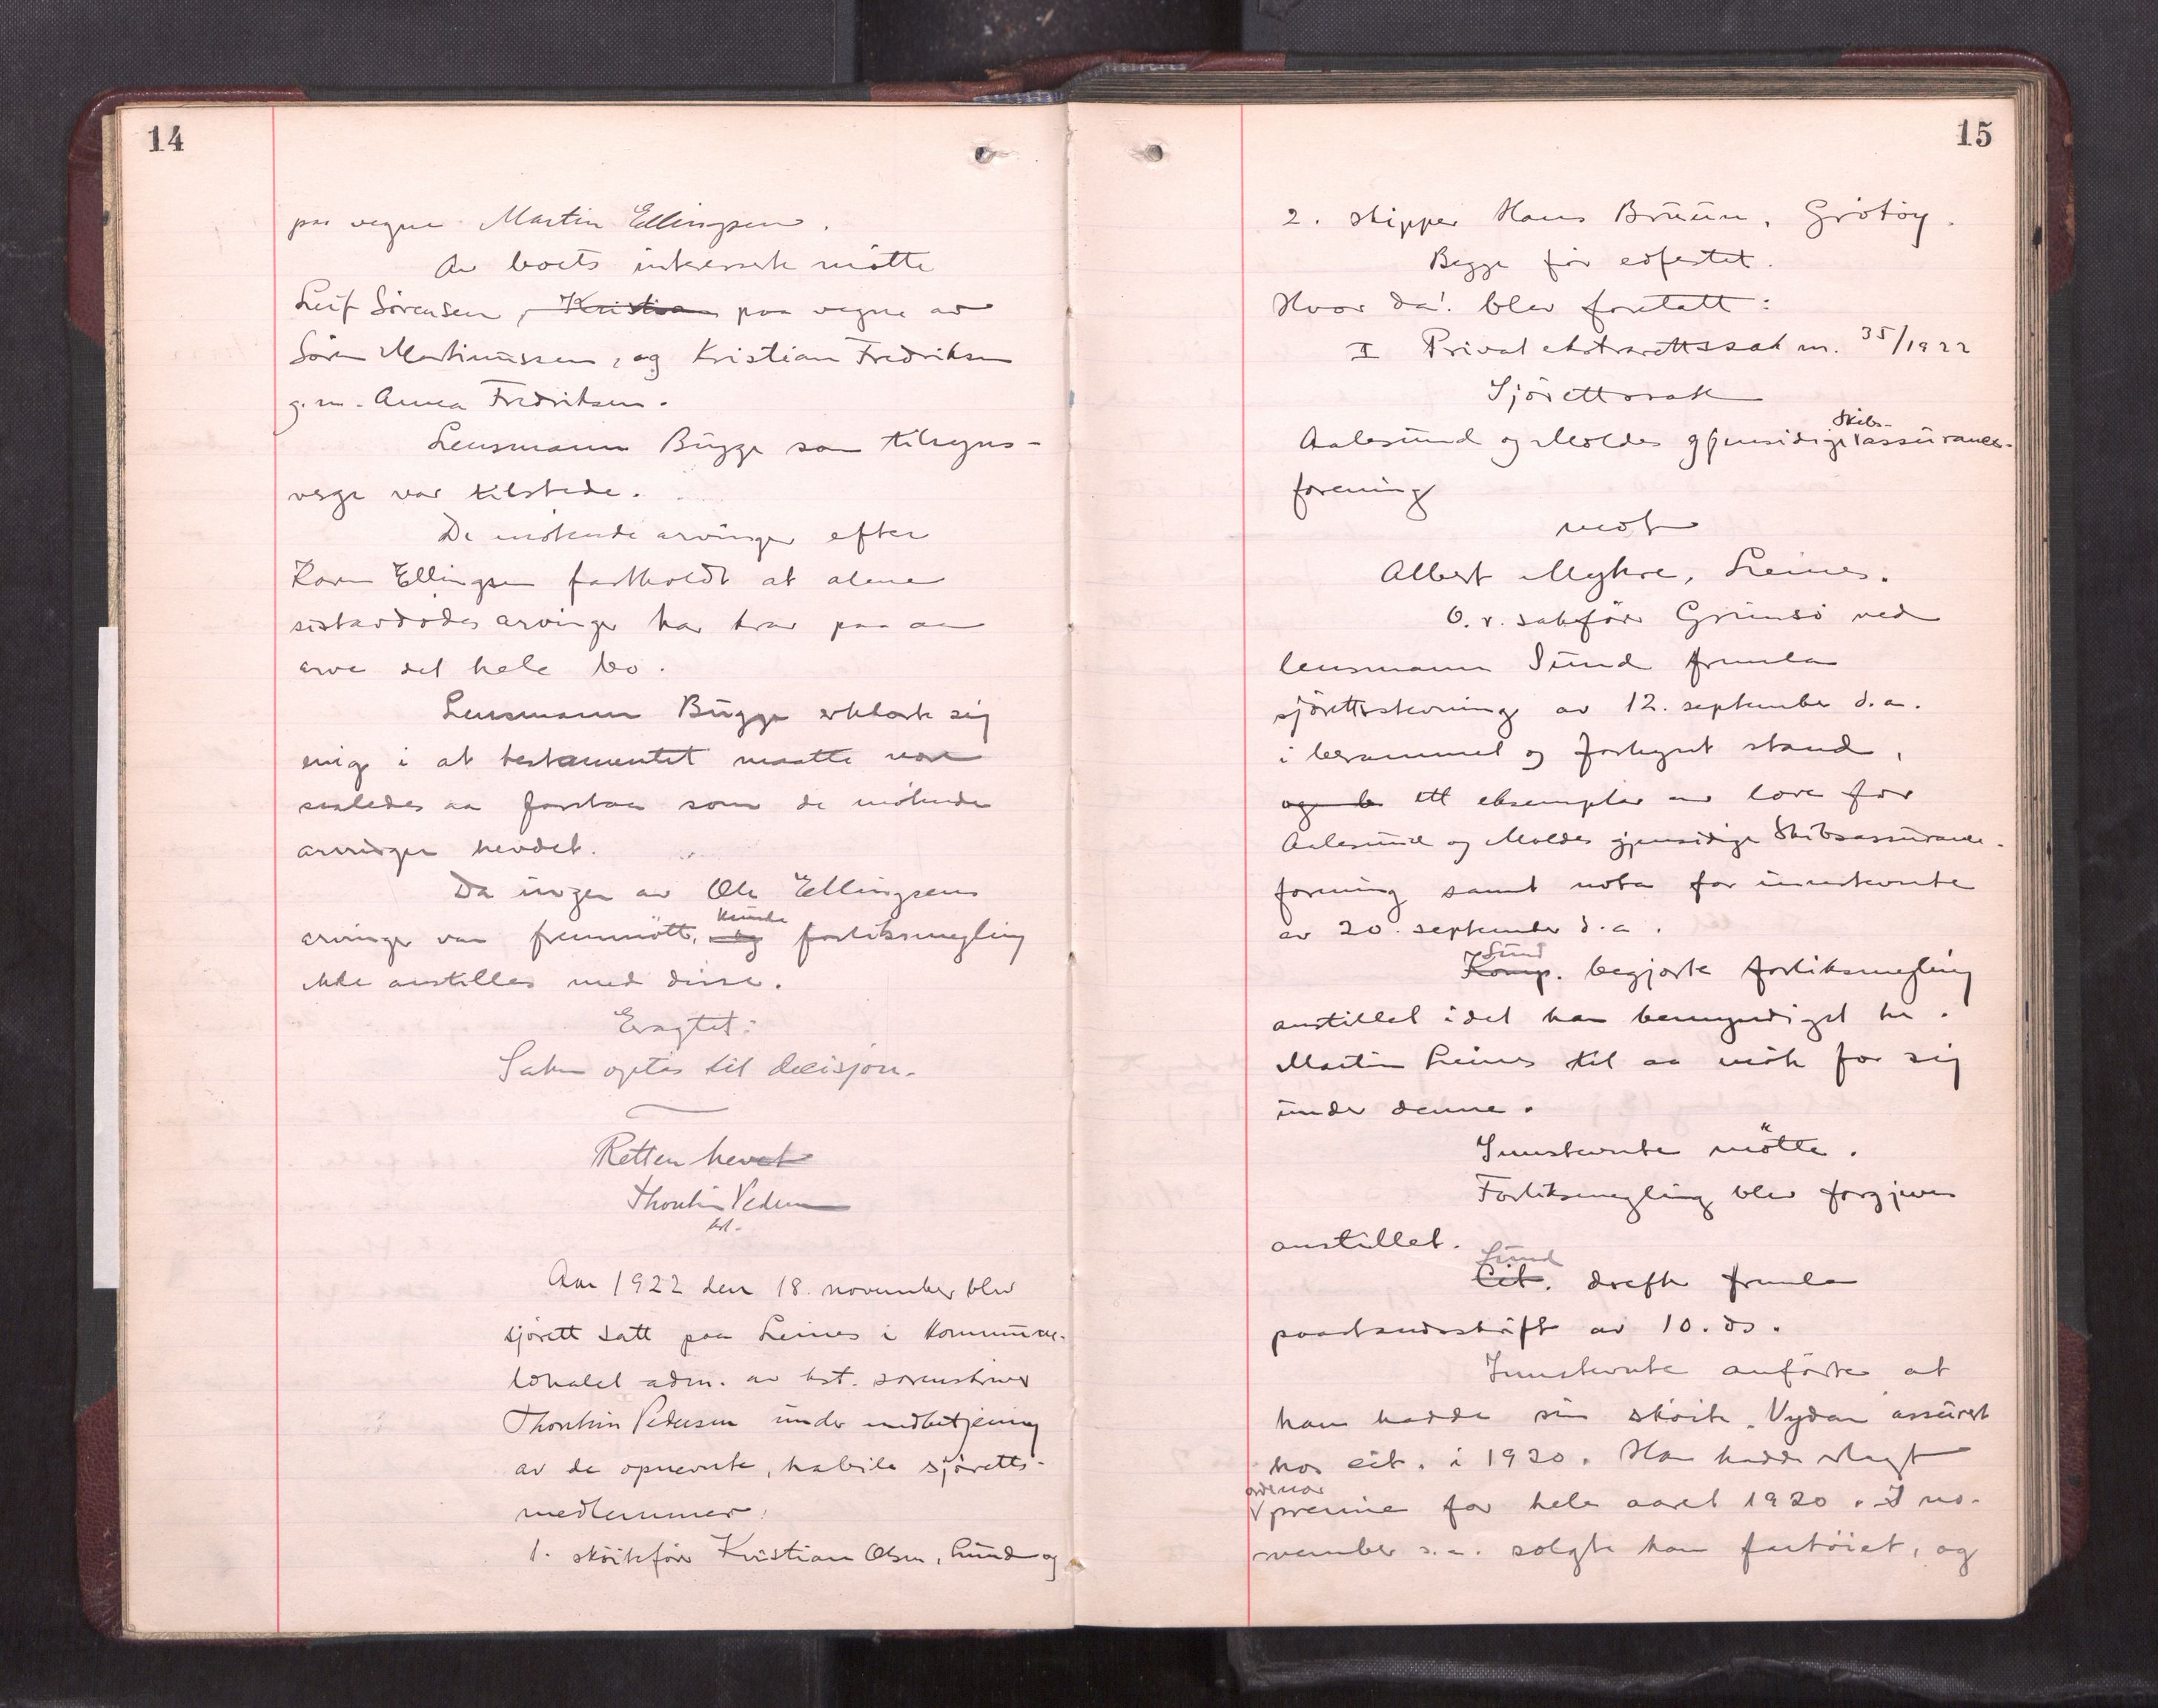 14
paa vegne Martin Ellingsen.
Av boets interesserte møtte
Leif Sørensen, Kristian paa vegne av
Søren Martinussen, og Kristian Fredriksen
g. m. Anna Fredriksen.
Lensmann Bügge som tilsyns-
verge var tilstede.
De møtende arvinger efter
Karen Ellingsen fastholdt at alene
sistavdødes arvinger har krav paa aa
arve det hele bo.
Lensmann Bügge erklærte sig
enig i at testamentet maatte være
saaledes aa forstaa som de møtende
arvinger hevdet.
Da ingen av Ole Ellingsens
kunde
arvinger var fremmøtt, og forliksmegling
ikke anstilles med disse.
Eragtet:
Saken optas til decisjon.
Retten hevet
Thorstein Pedersen
kst.
Aar 1922 den 18. november blev
sjørett satt paa Leines i kommune-
lokalet adm. av kst. sorenskriver
Thorstein Pedersen under medbetjening
av de opnevnte, habile sjøretts-
medlemmer:
1. skøitefører Kristian Olsen, Lund og
15
2. skipper Hans Bruun, Grøtøy.
Begge før edfestet.
Hvor da! blev foretatt:
I Privat ekstrarettssak nr. 35/1922
Sjørettssak
Skibs-
Aalesund og Moldes gjensidige assurance-
forening
mot
Albert Myhre, Leines.
O. r. sakfører Grimsø ved
lensmann Sund fremla
sjørettsstevning av 12. september d.a.
i berammet og forkynt stand,
og et eksemplar av love for
Aalesund og Moldes gjensidige Skibsassurance-
forening samt nota for innstevnte
av 20. september d.a.
Sund
Komp. begjærte forliksmegling
anstillet idet han bemyndiget hr.
Martin Leines til aa møte for sig
under denne.
Innstevnte møtte.
Forliksmegling blev forgjeves
anstillet.
Sund
Cit. drefter fremla
paastandsskrift av 10. ds.
Innstevnte anførte at
han hadde sin skøite "Vydan" assurert
hos cit. i 1920. Han hadde
ordinær
premie for hele aaret 1920. I no-
vember s.a. solgte han fartøiet, og